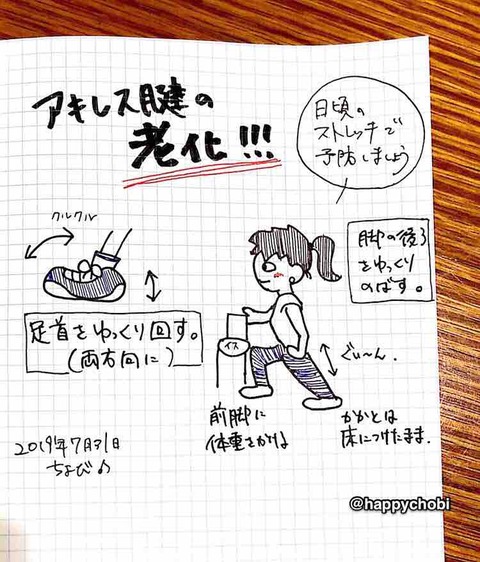 アキレス腱の
老化!!!
日頃の
ストレッチで
予防しましょう
クルクル
脚の後ろ
をゆっくり
のばす。
足首をゆっくり回す。
(両方向に)
イス
ぐぃ〜ん.
前脚に
体重をかける
かかとは
床につけたまま.
2019年7月31日
ちょび♪
@happychobi